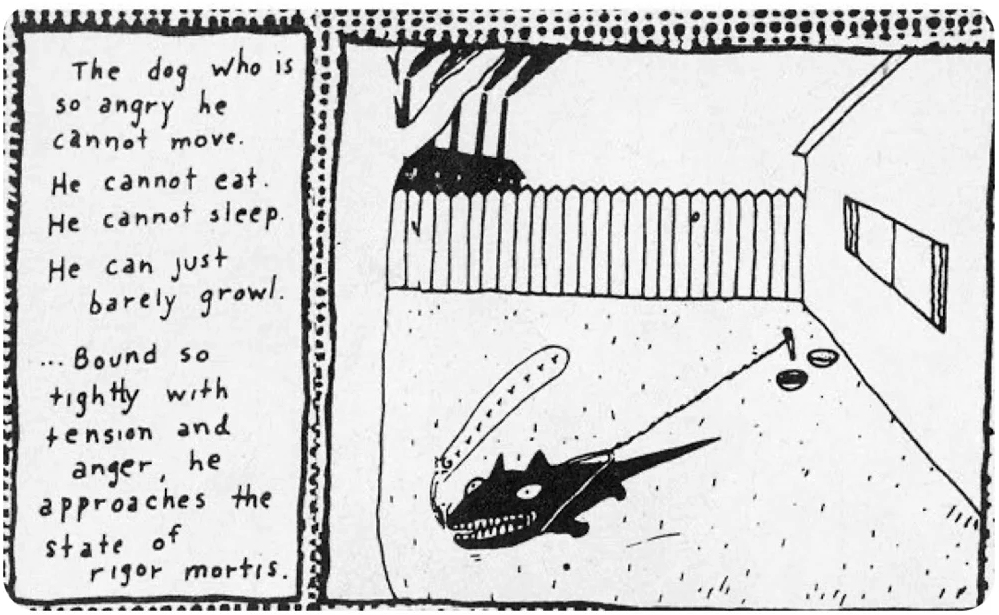 The dog who is
so angry he
cannot move.
He cannot eat.
He cannot sleep.
He can just
barely growl.
...Bound so
tightly with
tension and
anger, he
approaches the
state of
rigor mortis.